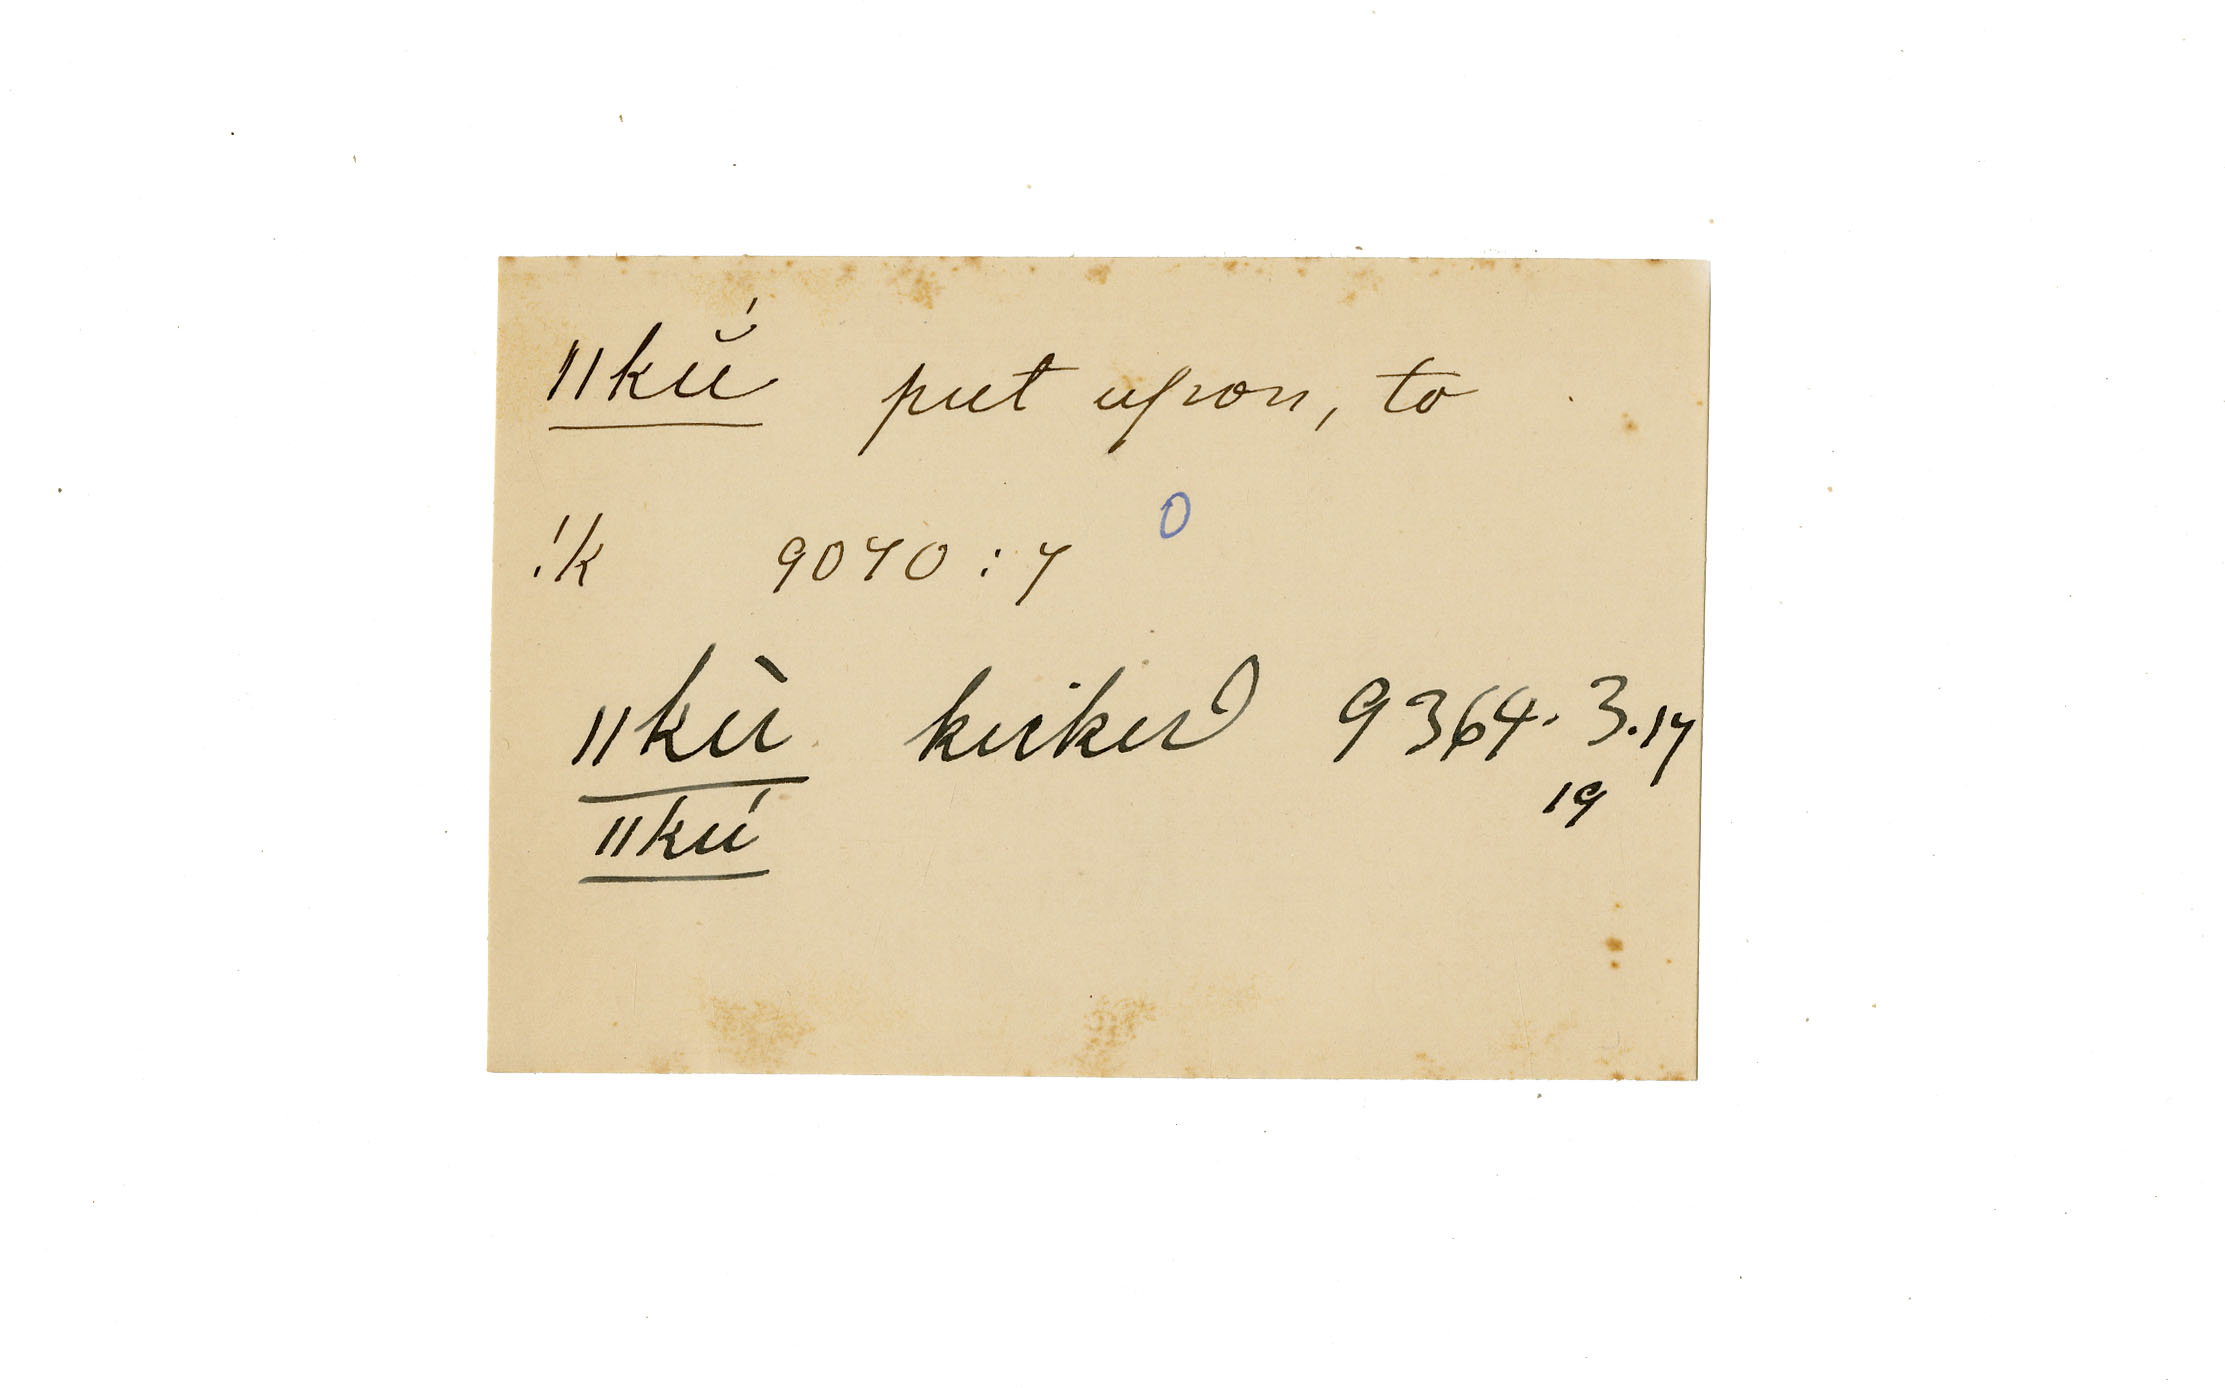 ǁkŭ́ put upon, to
!k 9070 : 7 O
ǁkù kicked 9364. 3.17
ǁkú 19